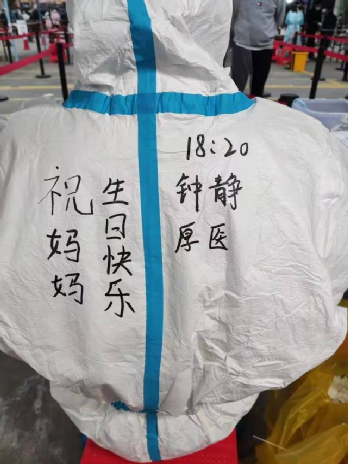 祝妈妈
生日快乐
18:20
钟静
厚医